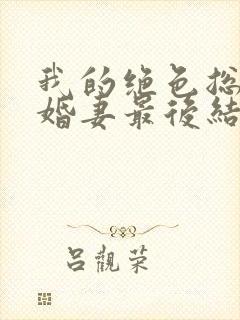 我的绝色总
婚妻最後結
吕觀荣